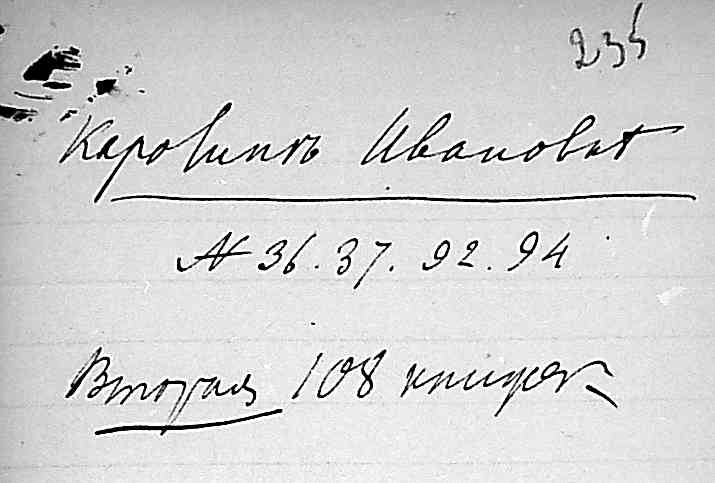 235
Каровинъ Иванова
№ 36. 37. 92. 94
Вторая 108 книжек